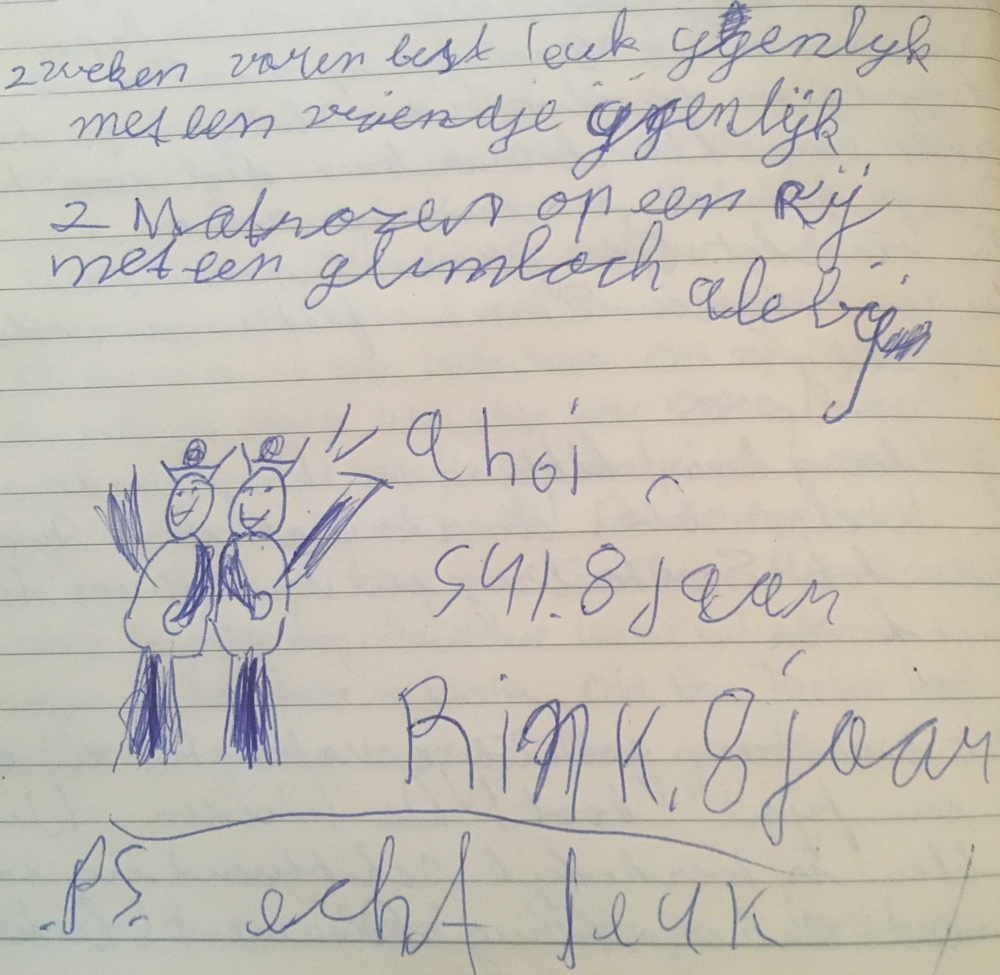 2 weken varen best leuk eigenlyk
met een vriendje eigenlijk
2 Matrozen op een Rij
met een glimlach alebij
ahoi
Syl. 8 jaar
Rink, 8 jaar
.P.S. echt leuk